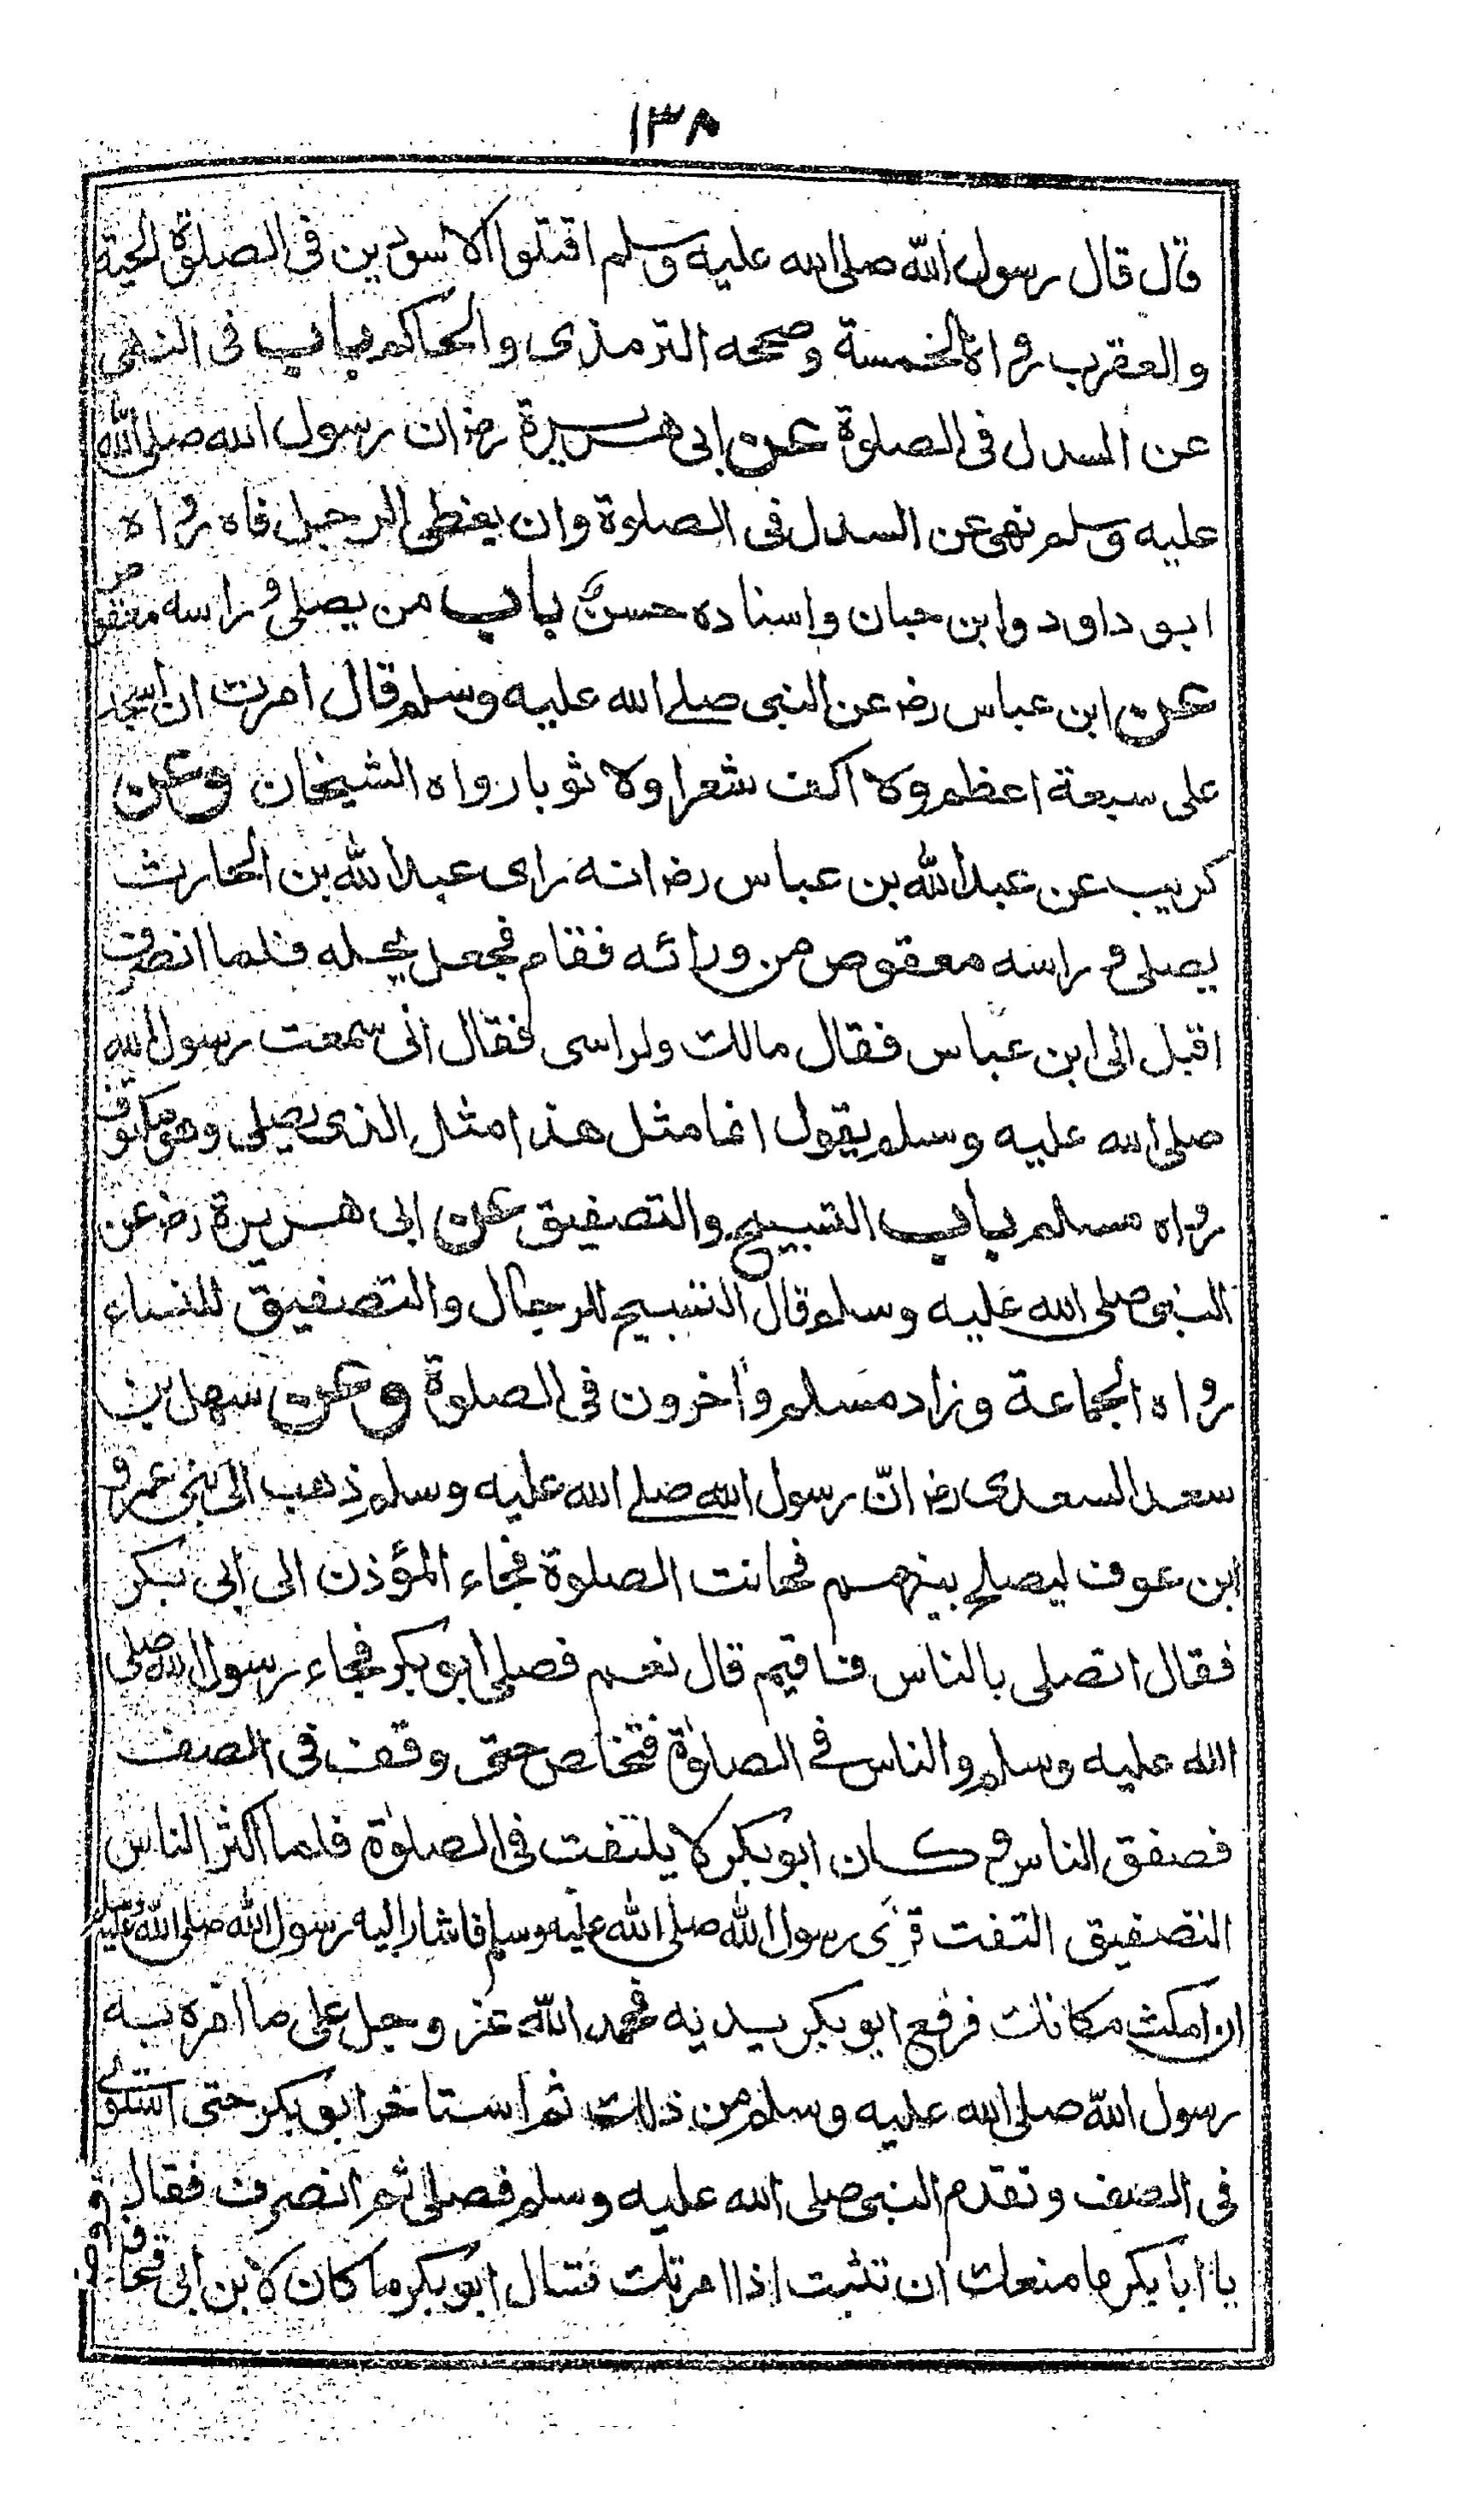 ١٣٨
قال قال رسول الله صلى الله عليه وسلم اقتلوا الاسودين فى الصلوة الحية
والعقرب رواه الخمسة وصححه الترمذى والحاكم باب فى النهى
عن السدل فى الصلوة عن ابى هريرة رض ان رسول الله صلى الله
عليه وسلم نهى عن السدل فى الصلوة وان يغطى الرجل فاه رواه
ابو داود وابن حبان واسناده حسن باب من يصلى وراسه معقوص
عن ابن عباس رض عن النبى صلى الله عليه وسلم قال امرت ان اسجد
على سبعة اعظم ولا اكف شعرا ولا ثوبا رواه الشيخان وعن
كريب عن عبد الله بن عباس رض انه راى عبد الله بن الحارث
يصلى وراسه معقوص من ورائه فقام فجعل يحله فلما انصرف
اقبل الى ابن عباس فقال مالك ولراسى فقال انى سمعت رسول الله
صلى الله عليه وسلم يقول انما مثل هذا مثل الذى يصلى وهو مكتوف
رواه مسلم باب التسبيح والتصفيق عن ابى هريرة رض عن
النبى صلى الله عليه وسلم قال التسبيح للرجال والتصفيق للنساء
رواه الجماعة وزاد مسلم واخرون فى الصلوة وعن سهل بن
سعد السعدى رض انّ رسول الله صلى الله عليه وسلم ذهب الى بنى عمرو
ابن عوف ليصلح بينهم فحانت الصلوة فجاء المؤذن الى ابى بكر
فقال اتصلى بالناس فاقيم قال نعم فصلى ابو بكر فجاء رسول الله صلى
الله عليه وسلم والناس فى الصلوٰة فتخلص حتى وقف فى الصف
فصفق الناس وكان ابو بكر لا يلتفت فى الصلوٰة فلما اكثر الناس
التصفيق التفت فرٰى رسول الله صلى الله عليه وسلم فاشار اليه رسول الله صلى الله عليه وسلم
ان امكث مكانك فرفع ابو بكر يديه فحمد الله عز وجل على ما امره به
رسول الله صلى الله عليه وسلم من ذلك ثم استاخر ابو بكر حتى استوى
فى الصف وتقدم النبى صلى الله عليه وسلم فصلى ثم انصرف فقال
يا ابا بكر ما منعك ان تثبت اذا امرتك فقال ابو بكر ما كان لابن ابى قحافة